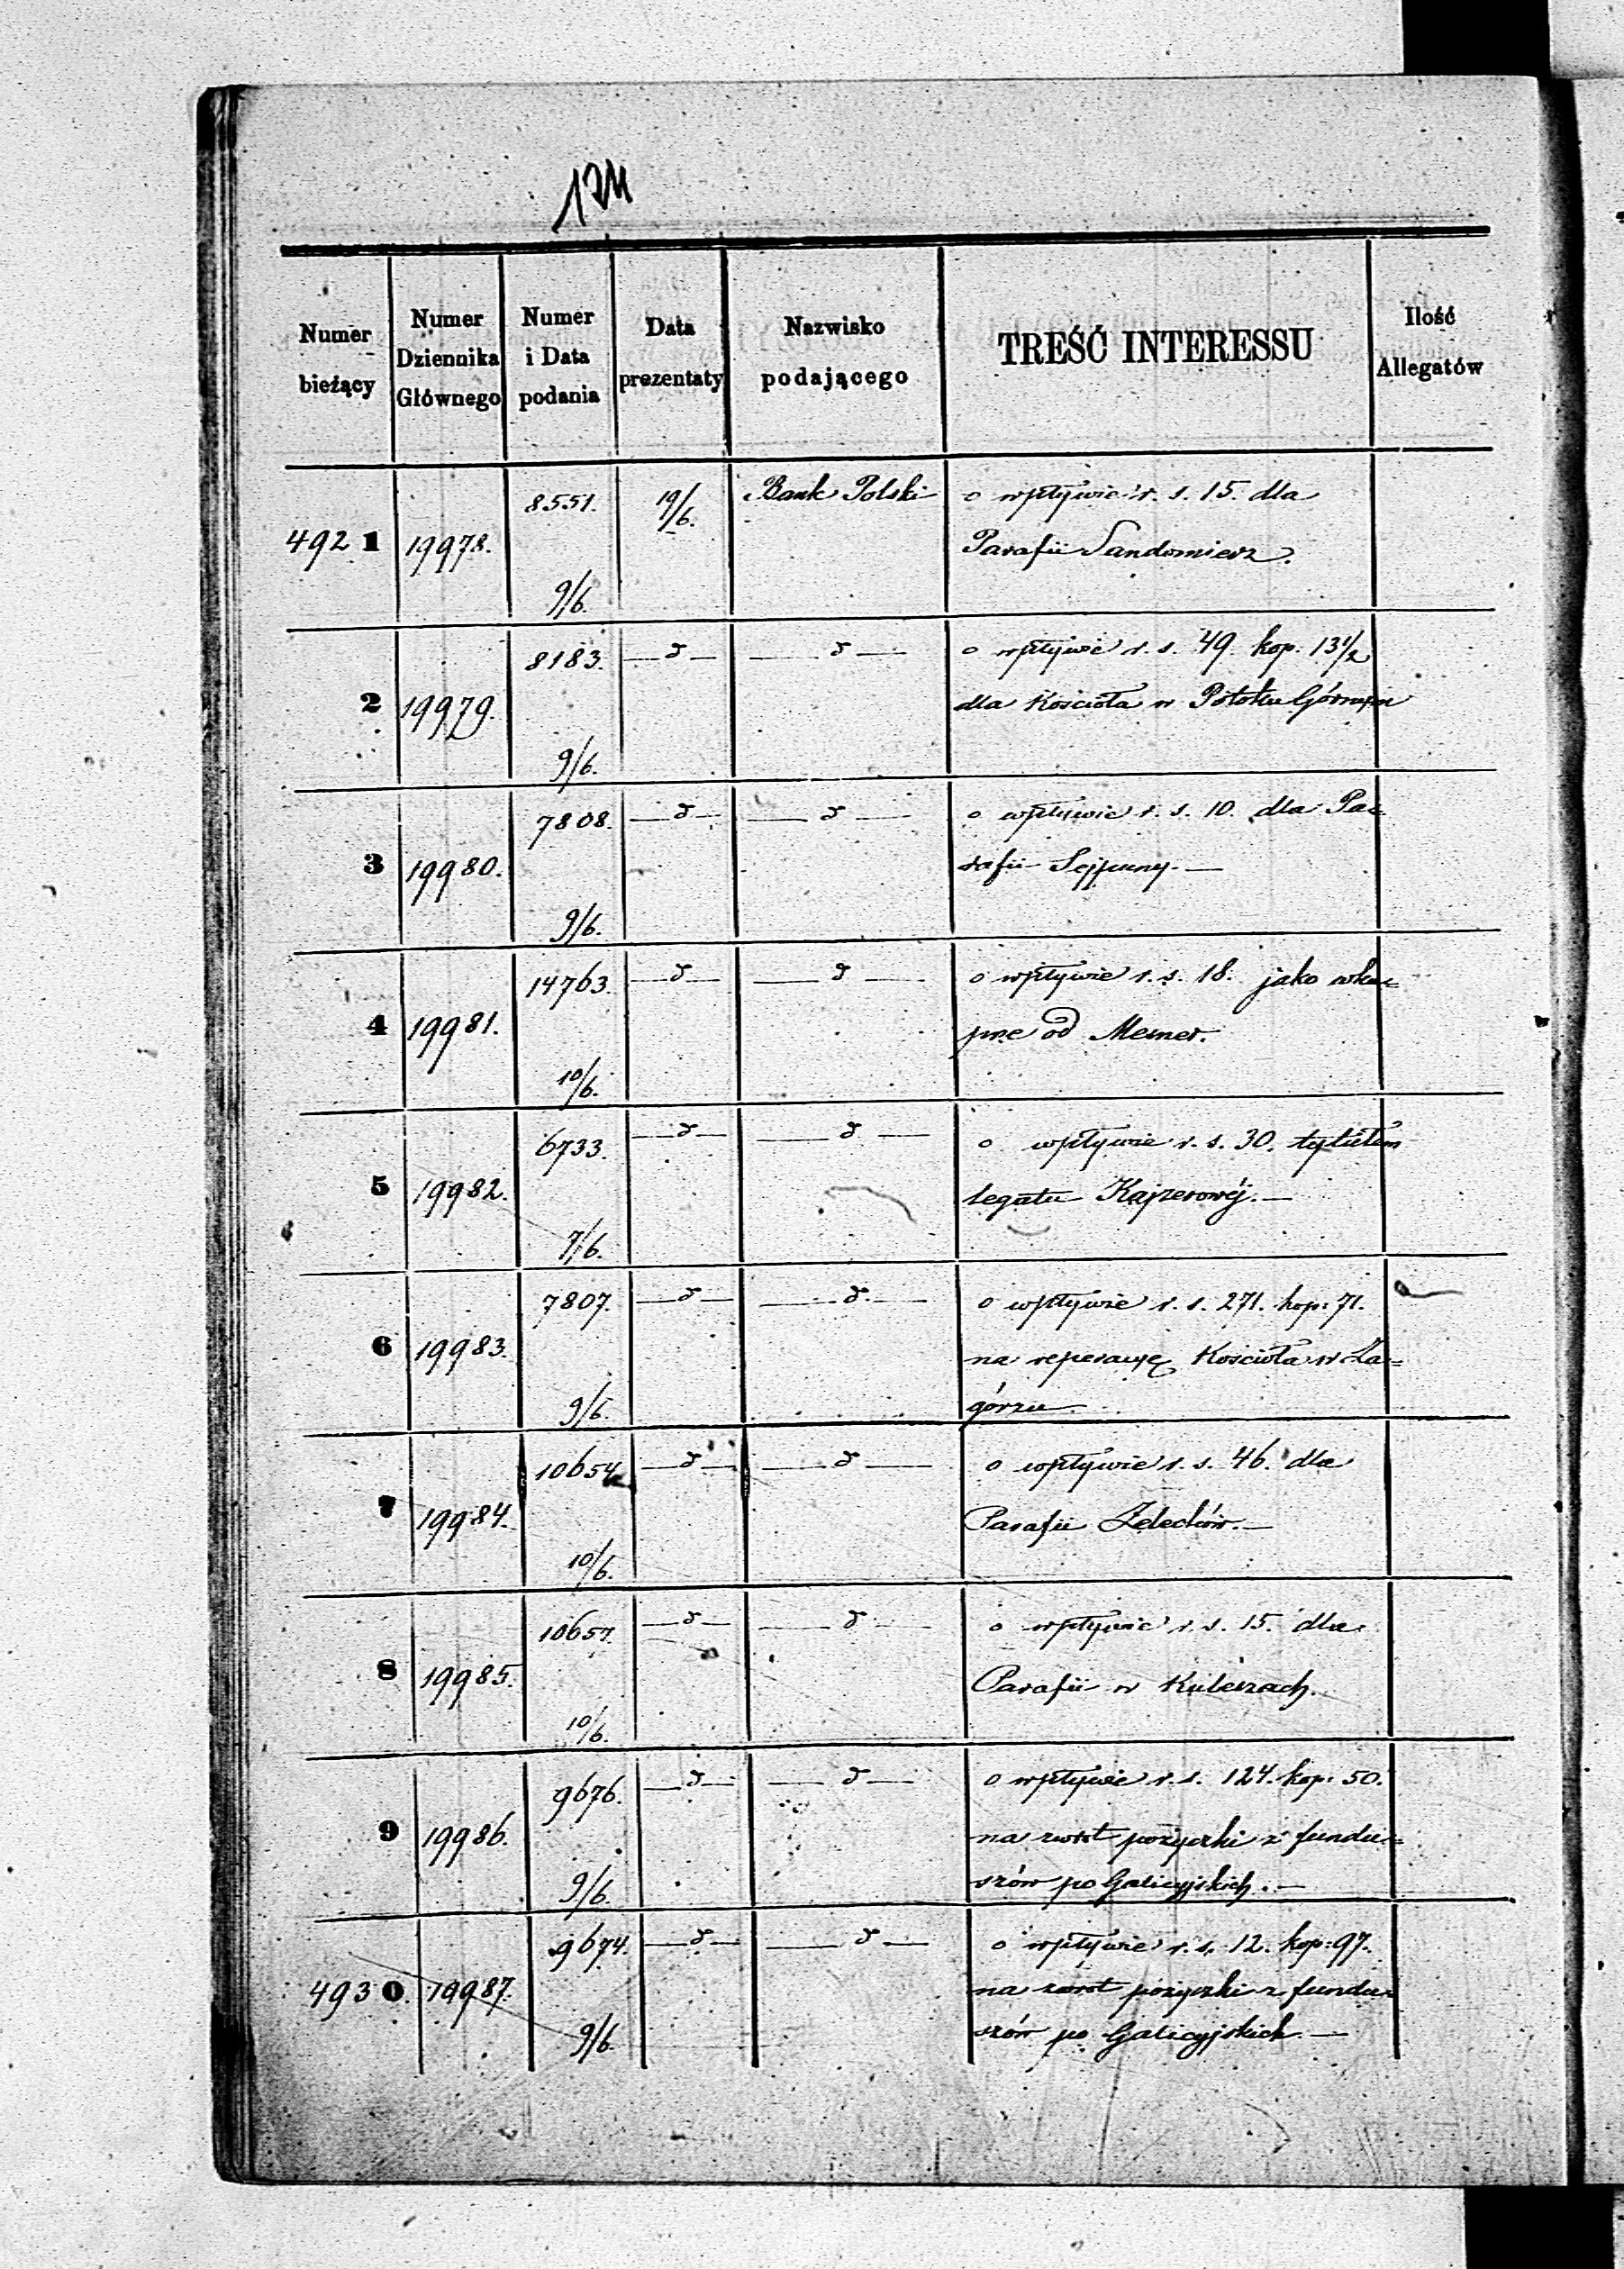 124
Numer bieżący
Numer Dziennika Głównego
Numer i Data podania
Data prezentaty
Nazwisko podającego
TREŚĆ INTERESSU
Ilość Allegatów
4921 19978. 8551. 19/6. Bank Polski o wpływie r. s. 15. dla
Parafii Sandomierz.
9/6.
2 19979. 8183. — d — — d — o wpływie r. s. 49. kop. 13 1/2
dla Kościoła w Potoku Górnym
9/6.
3 19980. 7808. — d — — d — o wpływie r. s. 10. dla Pa=
rafii Sejpuny. —
9/6.
4 19981. 14763. — d — — d — o wpływie r. s. 18. jako wku=
pne od Memer.
10/6.
5 19982. 6733. — d — — d — o wpływie r. s. 30. tytułem
legatu Kajzerowéj. —
7/6.
6 19983. 7807. — d — — d — o wpływie r. s. 271. kop: 71.
na reperacyę Kościoła w Za=
górzu
9/6.
7 19984. 10654. — d — — d — o wpływie r. s. 46. dla
Parafii Żelechów. —
10/6.
8 19985. 10657. — d — — d — o wpływie r. s. 15. dla
Parafii w Kuleszach.
10/6.
9 19986. 9676. — d — — d — o wpływie r. s. 124. kop. 50.
na zwrot pożyczki z fundu=
szów po Galicyjskich. —
9/6.
4930. 19987. 9674. — d — — d — o wpływie r. s. 12. kop: 97.
na zwrot pożyczki z fundu=
szów po Galicyjskich —
9/6.